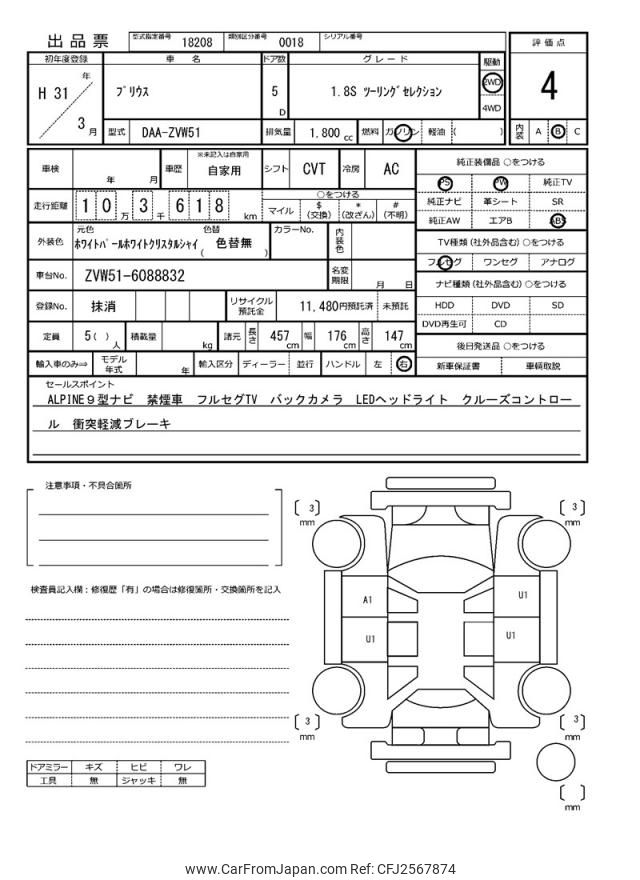 出品票 型式指定番号 18208 類別区分番号 0018 シリアル番号
評価点
4
内装 A B C
初年度登録 車名 ドア数 グレード 駆動
H 31 年 3 月 プリウス 5 D 1.8S ツーリングセレクション 2WD
4WD
型式 DAA-ZVW51 排気量 1,800 cc 燃料 ガソリン 軽油 ( )
車検 年 月 車歴 ※未記入は自家用 自家用 シフト CVT 冷房 AC
走行距離 1 0 万 3 千 6 1 8 km
○をつける
マイル $ (交換) * (改ざん) # (不明)
外装色 元色 色替 カラーNo. 内装色
ホワイトパールホワイトクリスタルシャイ ( 色替無 )
車台No. ZVW51-6088832 名変期限 月 日
登録No. 抹消 リサイクル預託金 11,480円預託済 未預託
定員 5( ) 人 積載量 kg 諸元 長さ 457 cm 幅 176 cm 高さ 147 cm
輸入車のみ⇒ モデル年式 年 輸入区分 ディーラー 並行 ハンドル 左 右
純正装備品 ○をつける
PS PW 純正TV
純正ナビ 革シート SR
純正AW エアB ABS
TV種類 (社外品含む) ○をつける
フルセグ ワンセグ アナログ
ナビ種類 (社外品含む) ○をつける
HDD DVD SD
DVD再生可 CD
後日発送品 ○をつける
新車保証書 車輌取説
セールスポイント
ALPINE9型ナビ 禁煙車 フルセグTV バックカメラ LEDヘッドライト クルーズコントロー
ル 衝突軽減ブレーキ
注意事項・不具合箇所
検査員記入欄：修復歴「有」の場合は修復箇所・交換箇所を記入
ドアミラー キズ ヒビ ワレ
工具 無 ジャッキ 無
[ 3 ] mm [ 3 ] mm
A1 U1
U1 U1
[ 3 ] mm [ 3 ] mm
[ ] mm
www.CarFromJapan.com Ref: CFJ2567874